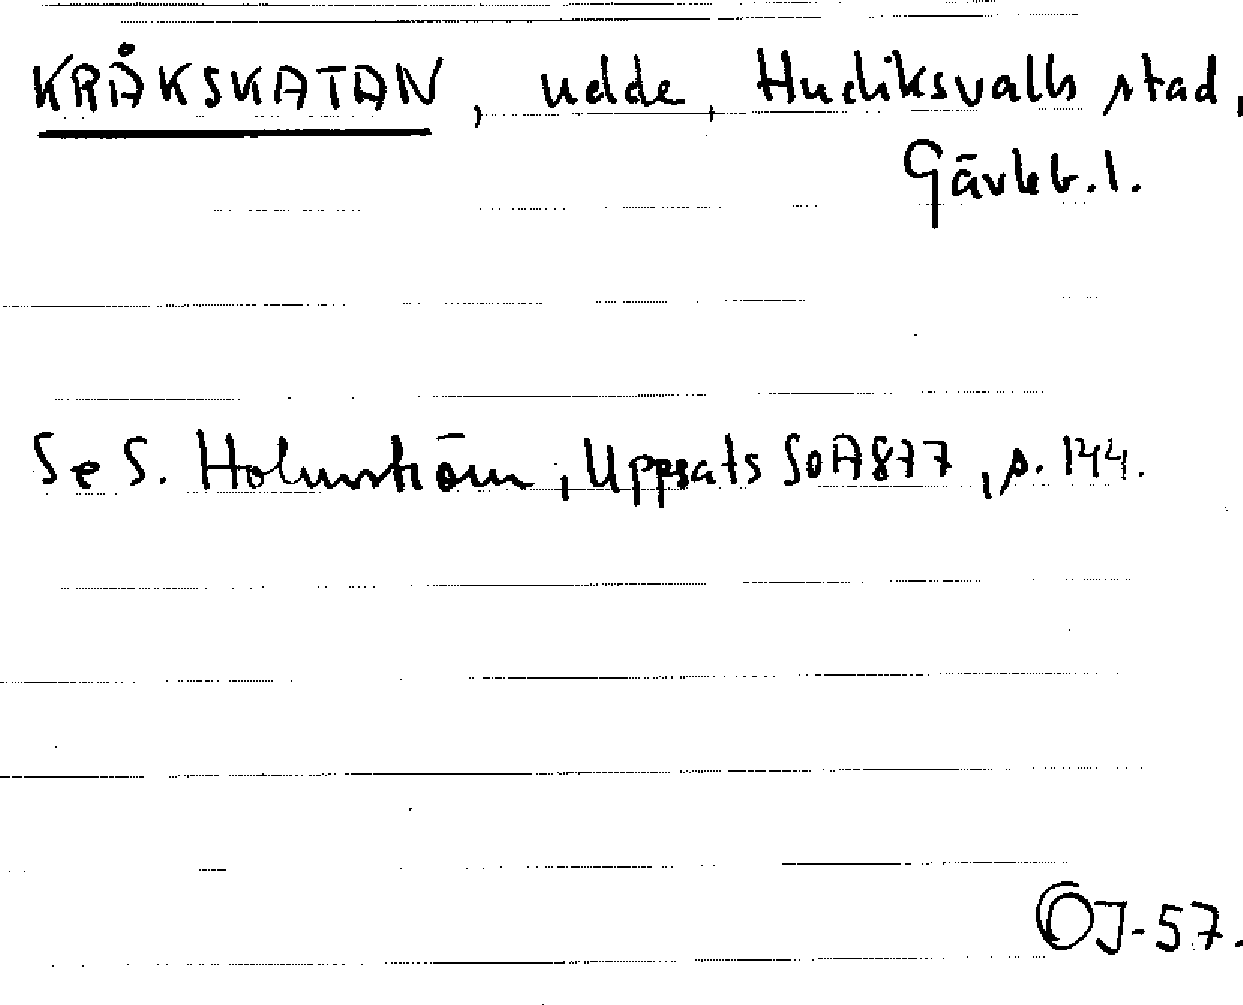 KRÅKSKATAN, udde, Hudiksvalls stad,
Gävleb. l.
Se S. Holmström, Uppsats SOA877, s. 144.
OJ-57.